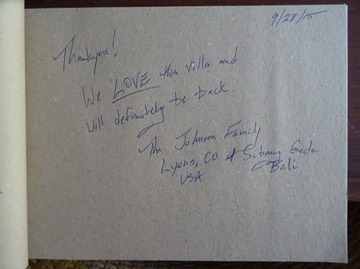 9/28/15
Thankyou!
We LOVE this villa and
will definitely be back.
The Johnson Family
Lyons, CO &
USA Bali